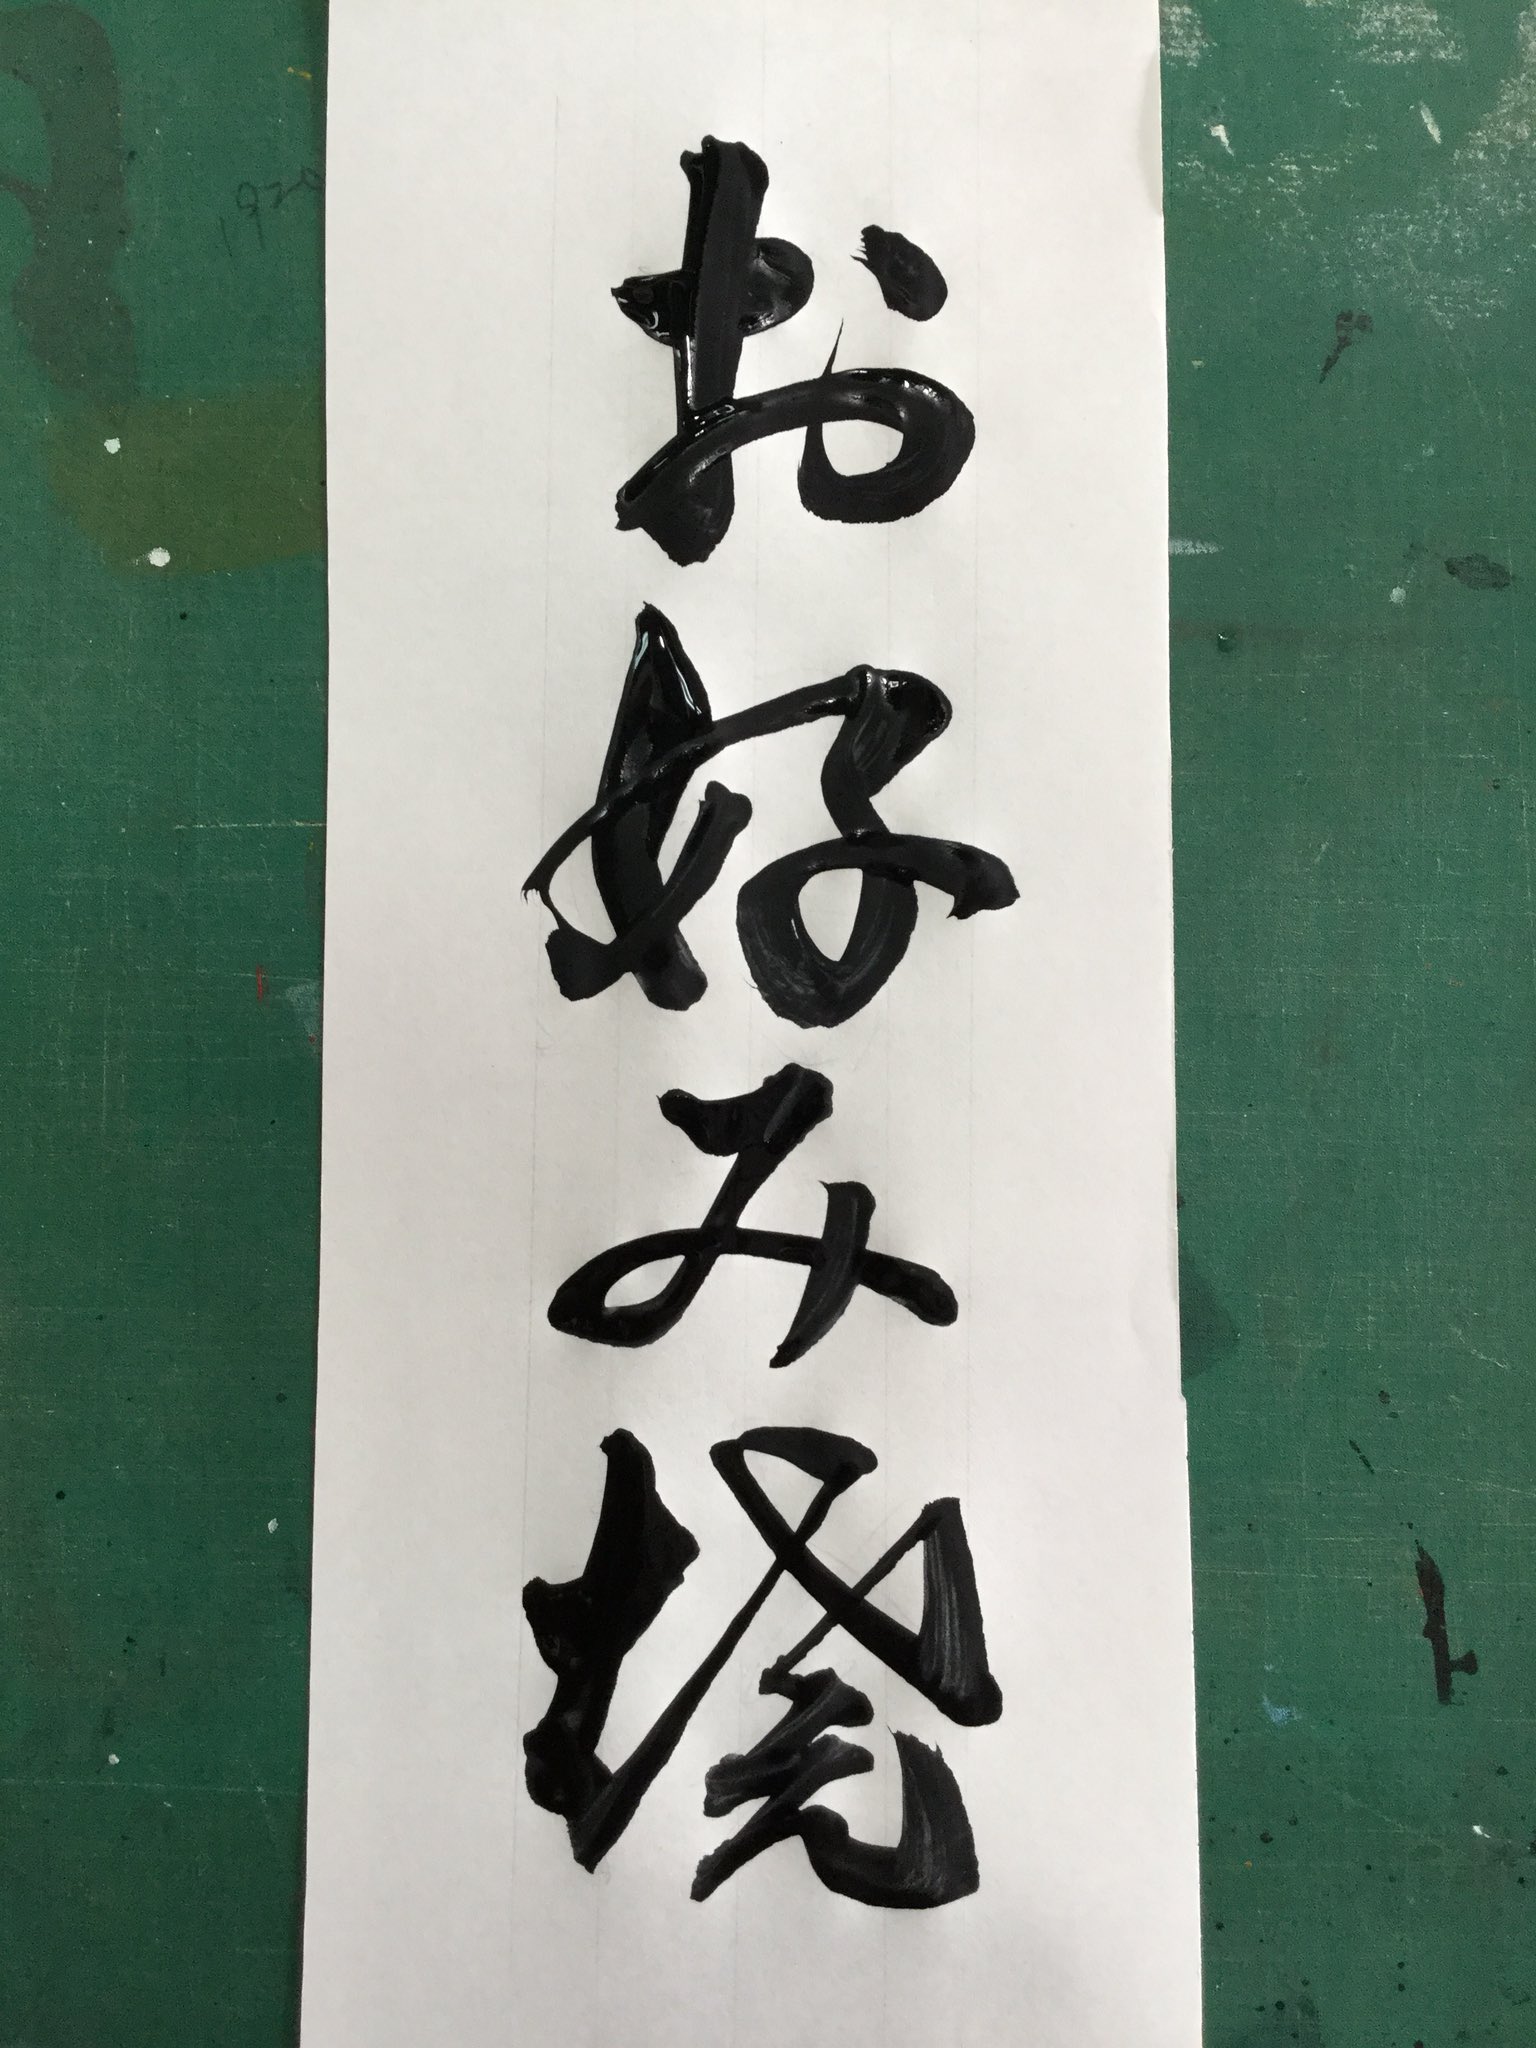 お好み焼
1920